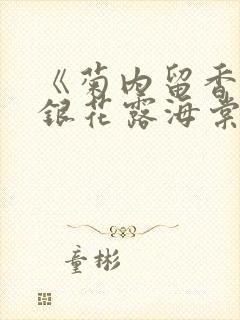 《菊内留香
銀花露海棠
童彬